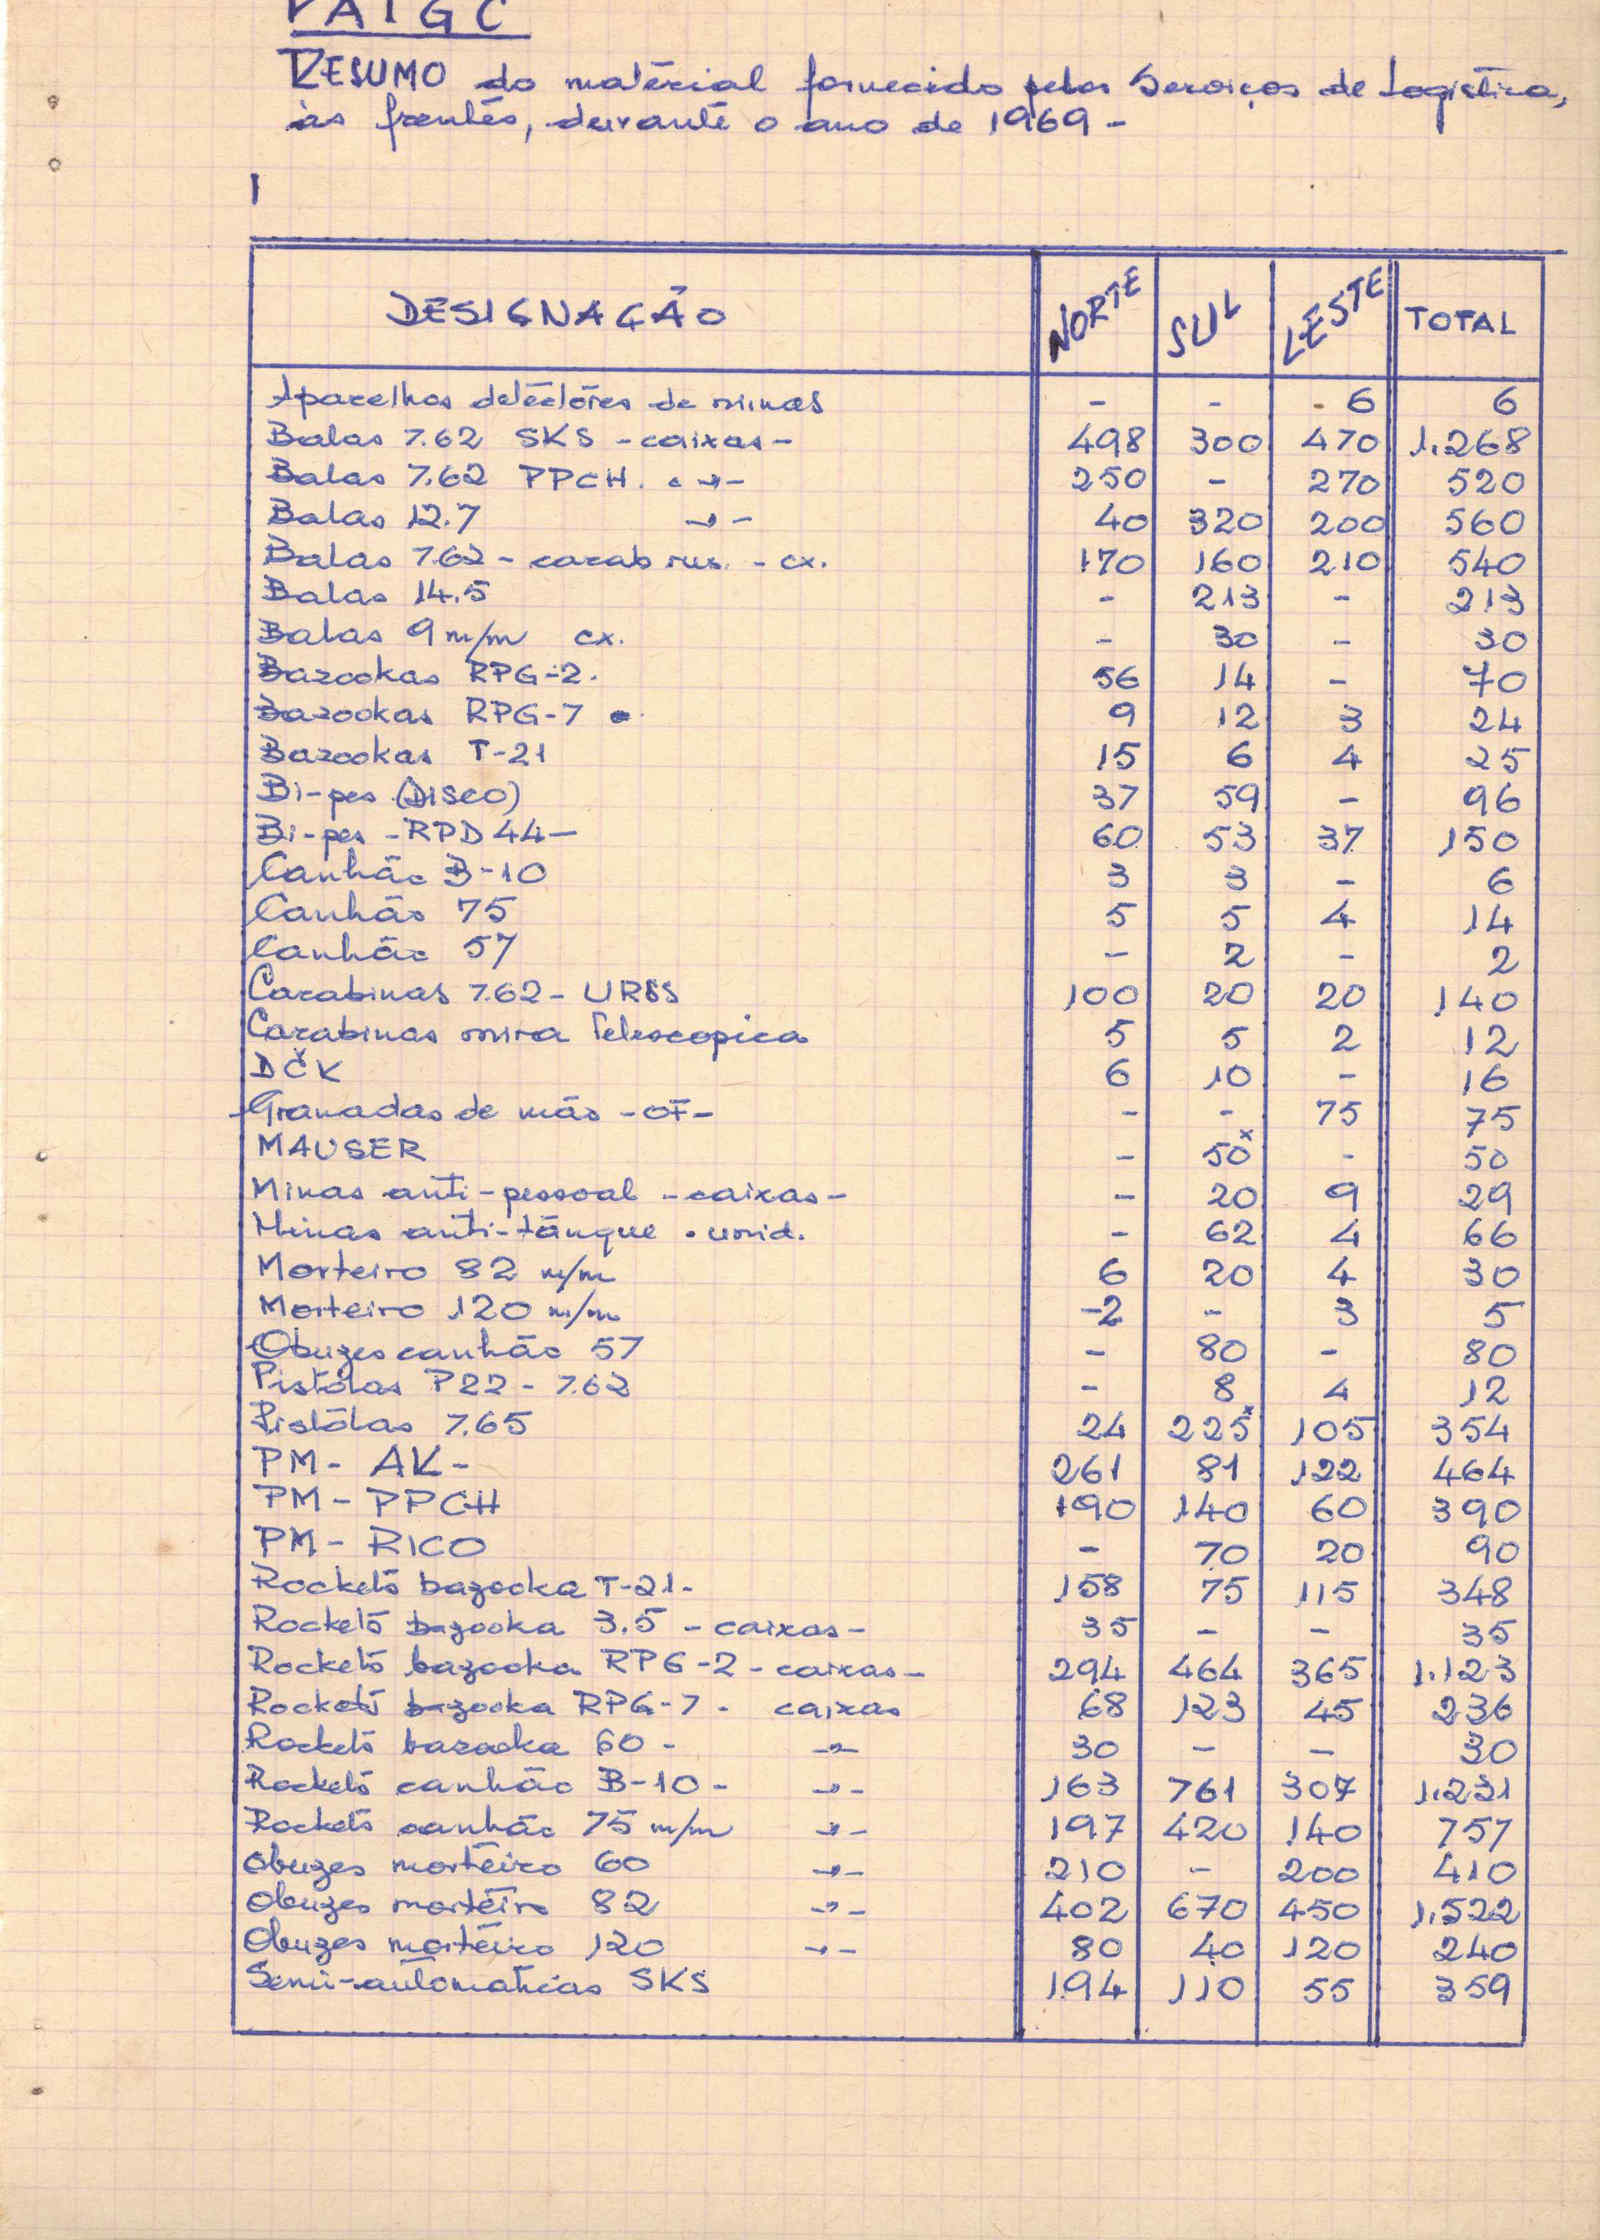 PAIGC
RESUMO do matérial fornecido pelos Serviços de Logistica,
às frentes, durante o ano de 1969 -
I
DESIGNAÇÃO NORTE SUL LESTE TOTAL
Aparelhos detectóres de minas - - 6 6
Balas 7.62 SKS - caixas - 498 300 470 1.268
Balas 7.62 PPCH. " - 250 - 270 520
Balas 12.7 " - 40 320 200 560
Balas 7.62 - carab rus. - cx. 170 160 210 540
Balas 14.5 - 213 - 213
Balas 9 m/m cx. - 30 - 30
Bazookas RPG-2. 56 14 - 70
Bazookas RPG-7 9 12 3 24
Bazookas T-21 15 6 4 25
Bi-pes (DISCO) 37 59 - 96
Bi-pes - RPD 44 - 60 53 37 150
Canhão B-10 3 3 - 6
Canhão 75 5 5 4 14
Canhão 57 - 2 - 2
Carabinas 7.62 - URSS 100 20 20 140
Carabinas mira Telescopica 5 5 2 12
DČK 6 10 - 16
Granadas de mão - OF - - - 75 75
MAUSER - 50x - 50
Minas anti-pessoal - caixas - - 20 9 29
Minas anti-tânque . unid. - 62 4 66
Morteiro 82 m/m 6 20 4 30
Morteiro 120 m/m -2 - 3 5
Obuzes canhão 57 - 80 - 80
Pistólas P22 - 7.62 - 8 4 12
Pistólas 7.65 24 225x 105 354
PM - AK - 261 81 122 464
PM - PPCH 190 140 60 390
PM - RICO - 70 20 90
Rockets bazooka T-21 - 158 75 115 348
Rockets bazooka 3.5 - caixas - 35 - - 35
Rockets bazooka RPG-2 - caixas - 294 464 365 1.123
Rockets bazooka RPG-7 - caixas 68 123 45 236
Rockets bazooka 60 - " 30 - - 30
Rockets canhão B-10 - " - 163 761 307 1.231
Rockets canhão 75 m/m " - 197 420 140 757
Obuzes morteiro 60 " - 210 - 200 410
Obuzes morteiro 82 " - 402 670 450 1.522
Obuzes morteiro 120 " - 80 40 120 240
Semi-automaticas SKS 194 110 55 359